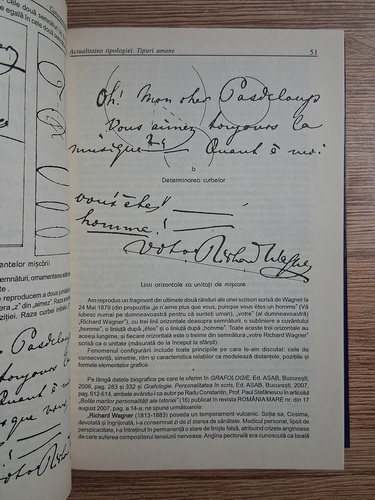 Actualitatea tipologiei. Tipuri umane 51
Oh! Mon cher Pasdeloup
Vous aimez toujours la
musique? Quant à moi
b
Determinarea curbelor
vous êtes!
homme!
votre Richard Wagner
Linii orizontale ca unități de mișcare
Am reprodus un fragment din ultimele două rânduri ale unei scrisori scrisă de Wagner la
24 Mai 1879 (din propoziția „je n'aime plus que vous, puisque vous êtes un homme" (Vă
iubesc numai pe dumneavoastră pentru că sunteți uman), „votre (al dumneavoastră)
„Richard Wagner"), cu trei linii orizontale deasupra semnăturii, o subliniere a cuvântului
„homme", o liniuță după „êtes" și o liniuță după „homme". Toate aceste trei orizontale au
aceeași lungime, și fiecare orizontală este o treime din semnătura „votre Richard Wagner"
scrisă ca o unitate (măsurată de la început la sfârșit).
Fenomenul configurării include toate principiile pe care le-am discutat: cele de
consecvență, simetrie, ritm și caracteristica relațiilor ce modelează distanțele, pozițiile și
formele elementelor grafice.
Pe lângă datele biografice pe care le oferim în GRAFOLOGIE, Ed. ASAB, București,
2006, pag. 283 și 332 și Grafologie. Personalitatea în scris, Ed. ASAB, București, 2007,
pag. 612-614, ambele având-l ca autor pe Radu Constantin, Prof. Paul Ștefănescu în articolul
„Bolile marilor personalități ale istoriei" (16) publicat în revista ROMÂNIA MARE nr. din 17
august 2007, pag. a 14-a, ne spune următoarele:
„Richard Wagner (1813-1883) poseda un temperament vulcanic. Soția sa, Cosima,
devotată și îngrijorată, i-a consemnat zi de zi starea de sănătate. Medicul personal, lipsit de
perspicacitate, l-a întreținut în permanență o stare de liniște falsă, atribuind crizele anginoase
de care suferea compozitorul tensiunii nervoase. Angina pectorală era cunoscută ca boală